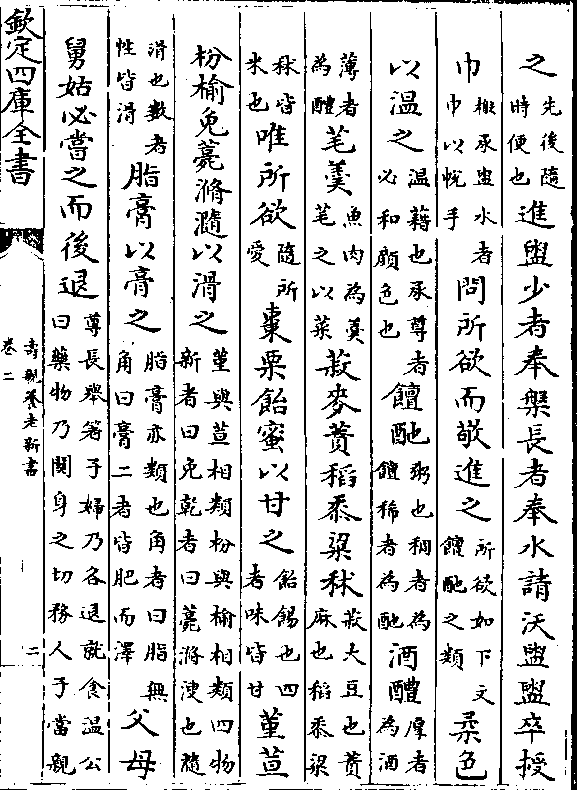 之先後隨時便也進盥少者奉槃長者奉水請沃盥盥卒授
巾槃承盥水者巾以帨手問所欲而敬進之所欲如下文饘酏之類柔色
以溫之溫藉也承尊者必和顔色也饘酏粥也稠者為饘稀者為酏酒醴厚者為酒
薄者為醴芼羮魚肉為羮芼之以菜菽麥蕡稻黍粱秫菽大豆也蕡麻也稻黍粱
秫皆米也唯所欲隨所愛棗栗飴蜜以甘之飴餳也四者味皆甘堇荁
枌榆免薧滫瀡以滑之堇與荁相類枌與榆相類四物新者曰免乾者曰薧滫溲也瀡
滑也數者性皆滑脂膏以膏之脂膏亦類也角者曰脂無角曰膏二者皆肥而澤父母
舅姑必嘗之而後退尊長舉箸子婦乃各退就食溫公曰藥物乃關身之切務人子當親
欽定四庫全書
壽親養老新書
卷二
二